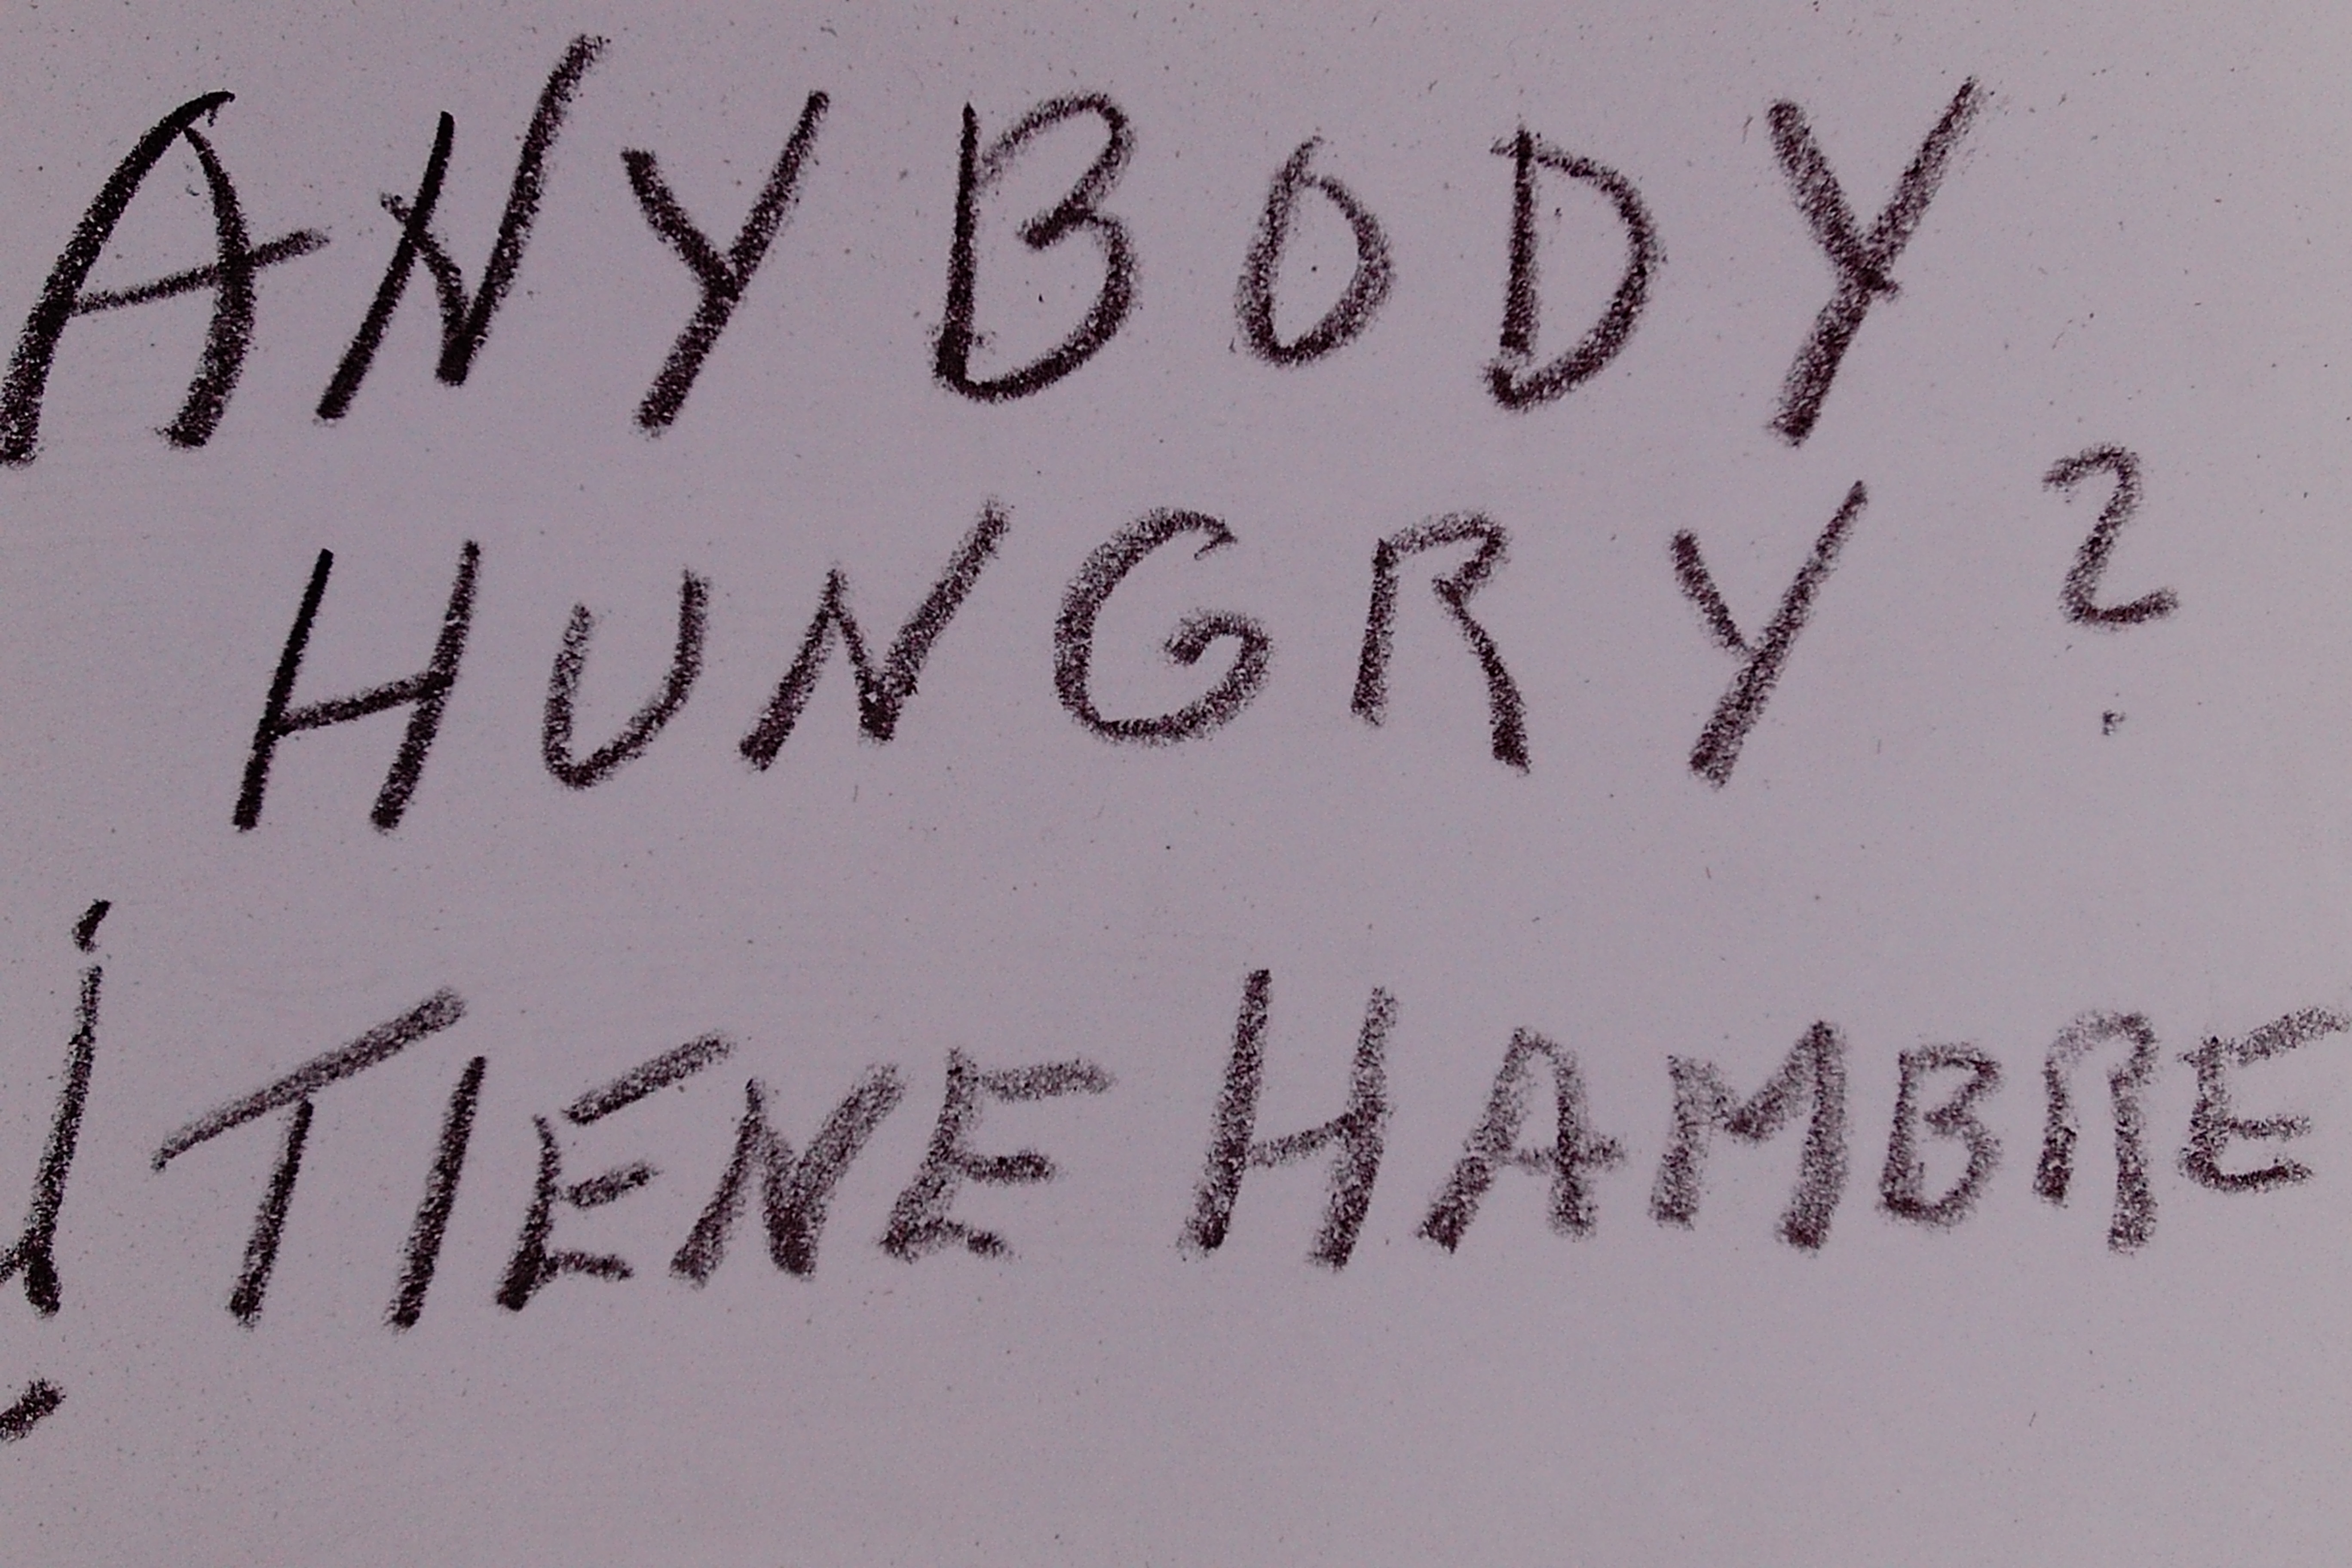 ANYBODY
HUNGRY?
¡TIENE HAMBRE